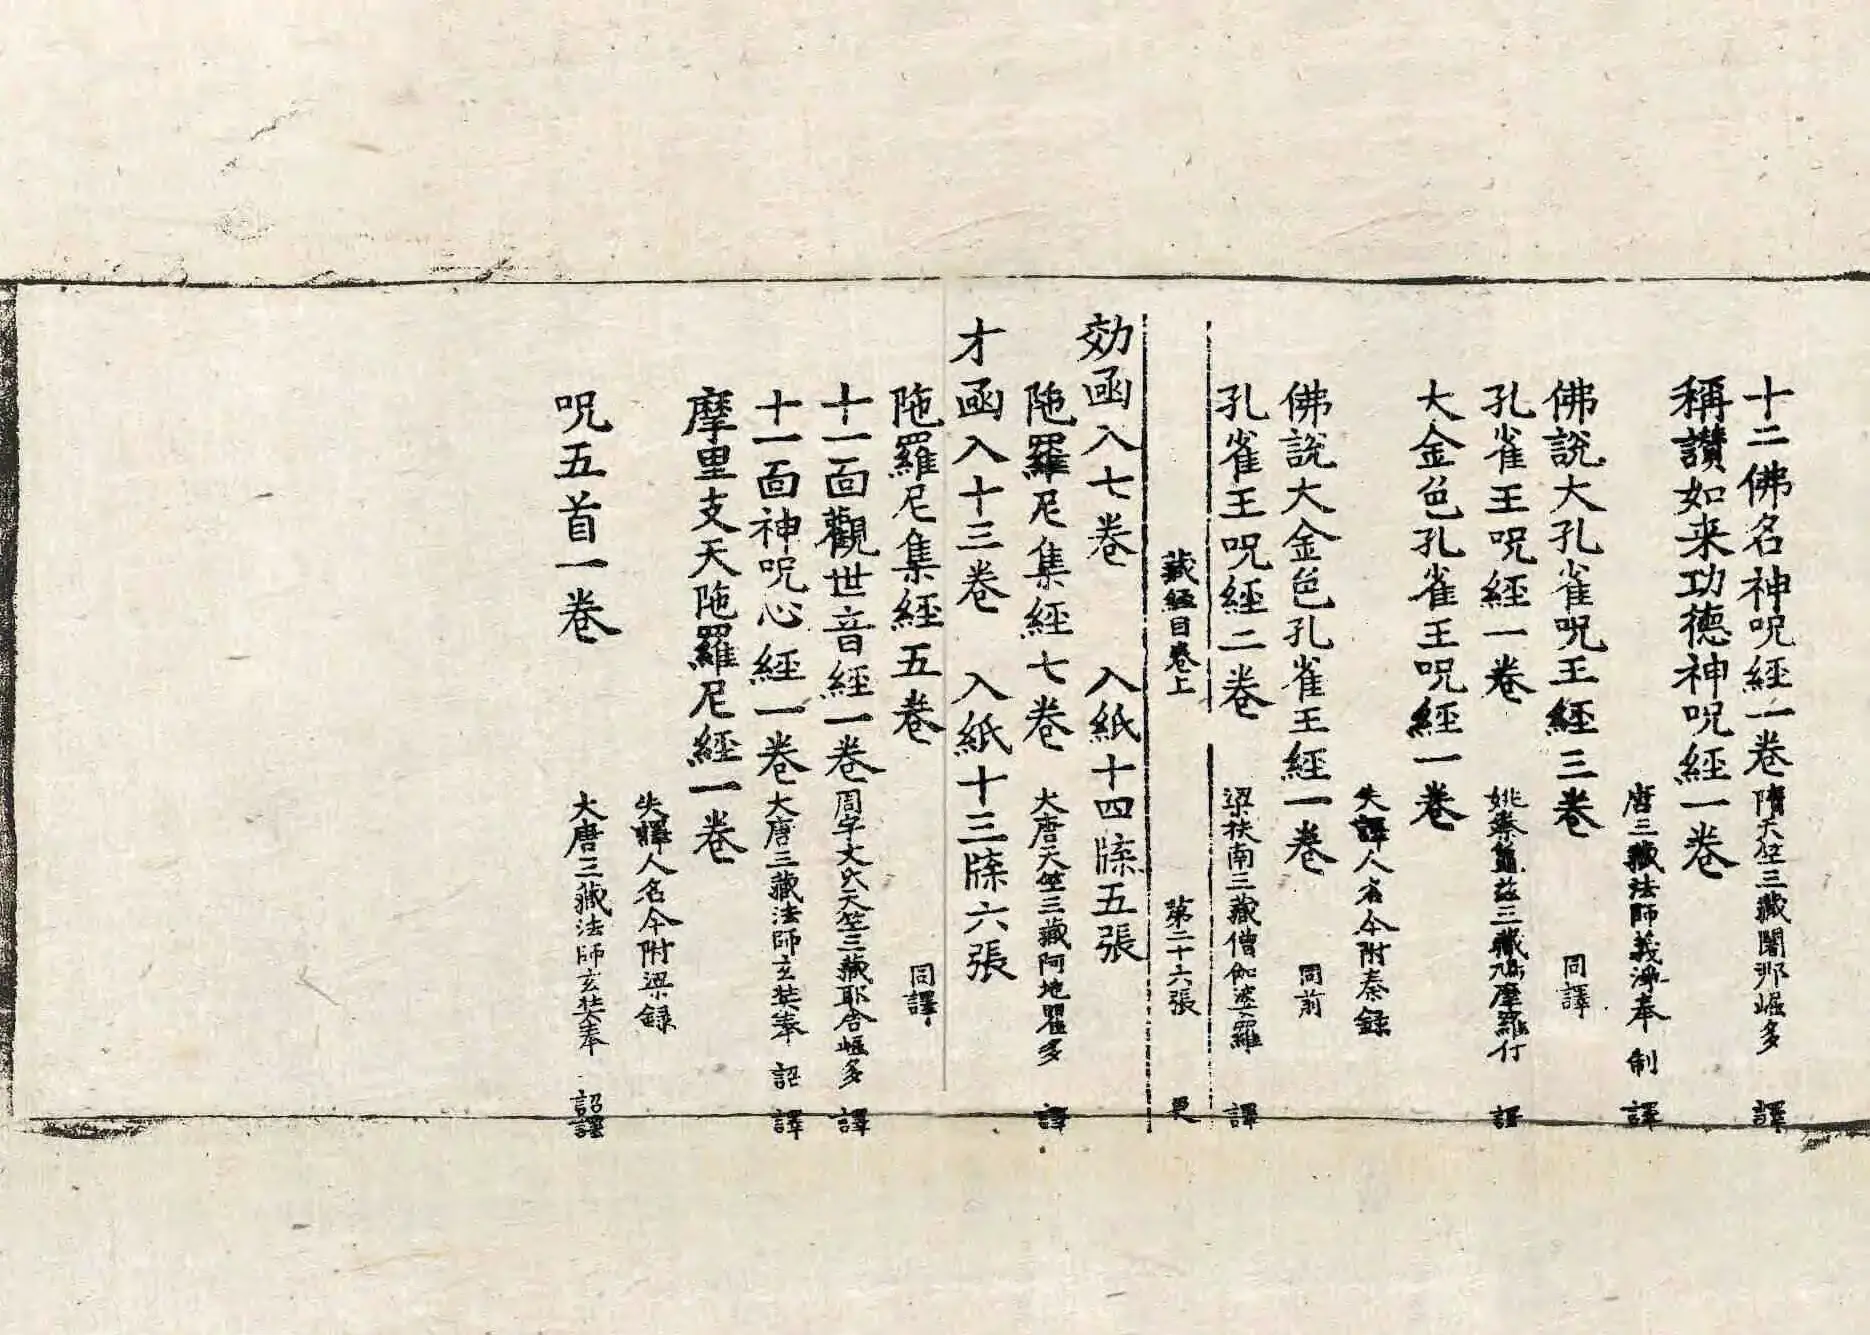 十二佛名神呪經一卷 隋天竺三藏闍那崛多 譯
稱讚如来功德神呪經一卷
唐三藏法師義淨奉 制 譯
佛說大孔雀呪王經三卷 同譯
孔雀王呪經一卷 姚秦龜茲三藏鳩摩羅什 譯
大金色孔雀王呪經一卷
失譯人名今附秦録
佛說大金色孔雀王經一卷 同前
孔雀王呪經二卷 梁扶南三藏僧伽婆羅 譯
藏經目卷上 第二十六張
効函入七卷 入紙十四牒五張
陁羅尼集經七卷 大唐天竺三藏阿地瞿多 譯
才函入十三卷 入紙十三牒六張
陁羅尼集經五卷 同譯
十一面觀世音經一卷 周宇文氏天竺三藏耶舍崛多 譯
十一面神呪心經一卷 大唐三藏法師玄奘奉 詔 譯
摩里支天陁羅尼經一卷
失譯人名今附梁録
呪五首一卷 大唐三藏法師玄奘奉 詔譯